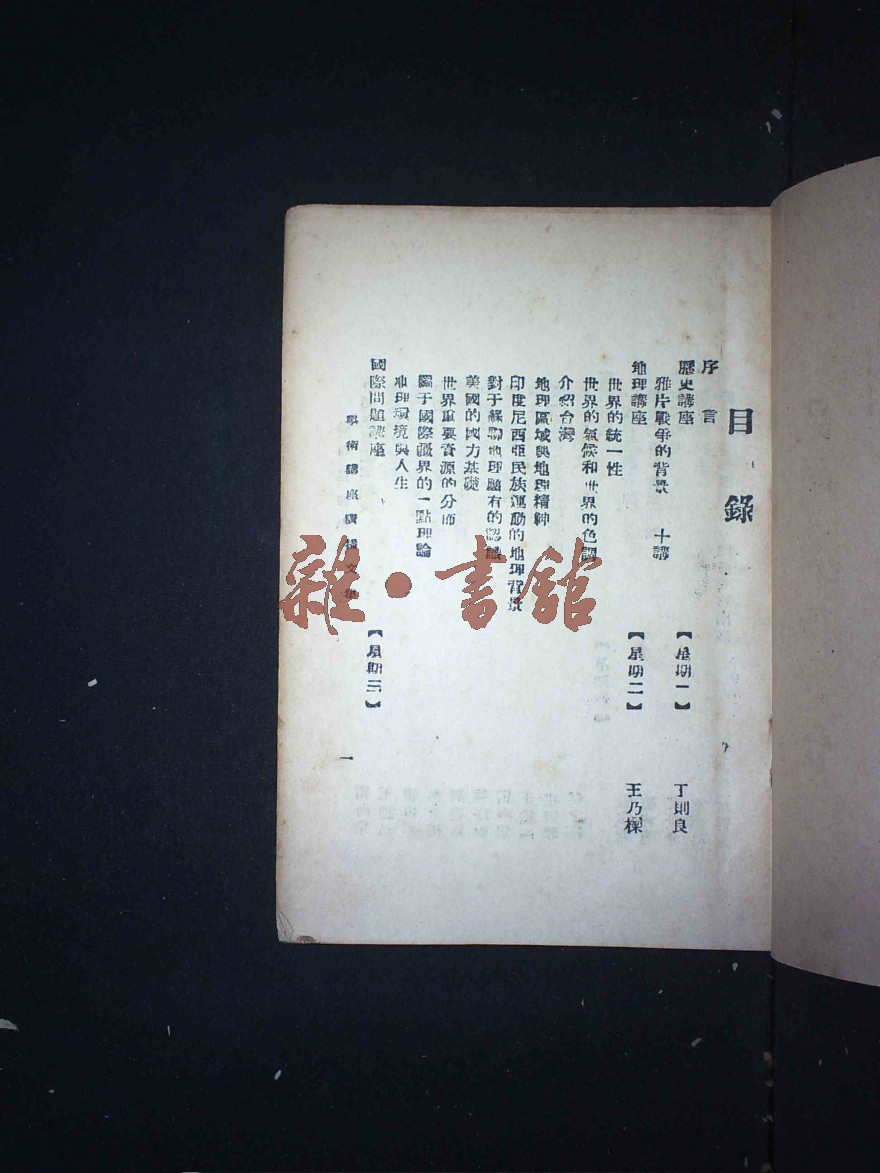 目錄
序言
歷史講座 【星期一】 丁則良
雅片戰爭的背景 十講
地理講座 【星期二】 王乃樑
世界的統一性
世界的氣候和世界的色調
介紹台灣
地理區域與地理精神
印度尼西亞民族運動的地理背景
對于蘇聯地理應有的認識
美國的國力基礎
世界重要資源的分佈
關于國際疆界的一點理論
地理環境與人生
國際問題講座 【星期三】
學術講座廣播文集
一
雜·書館